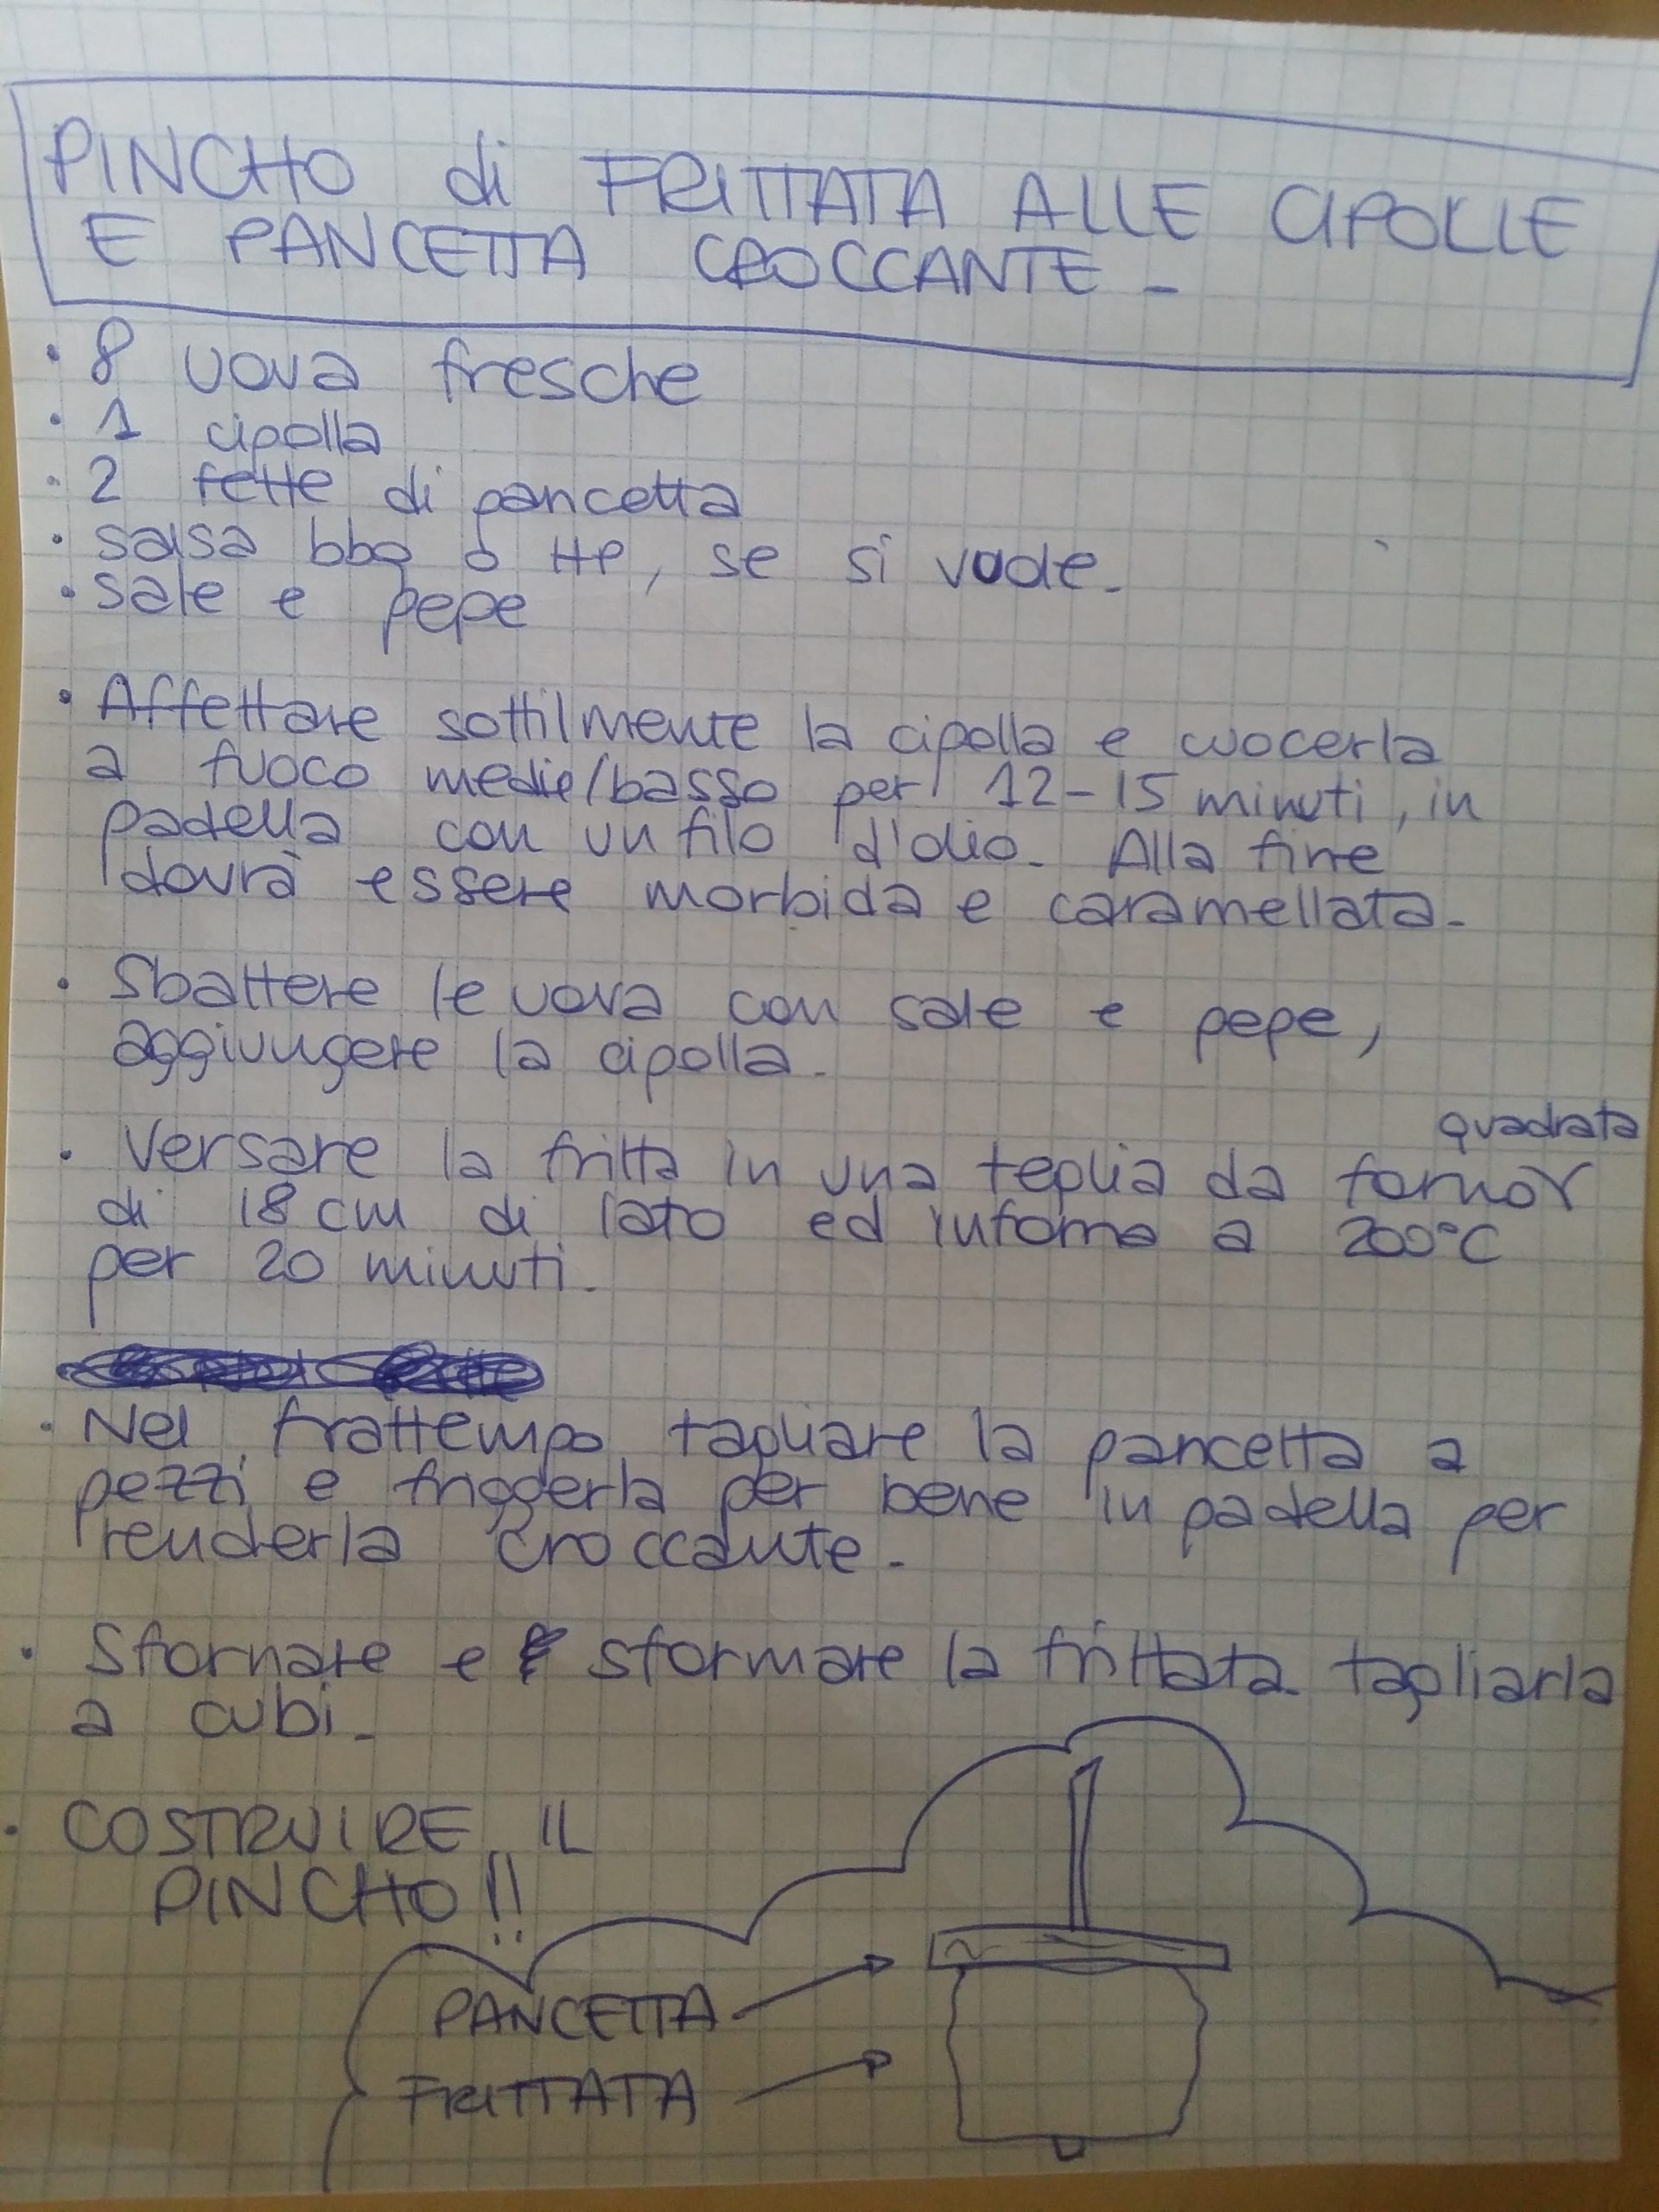 PINCHO di FRITTATA ALLE CIPOLLE
E PANCETTA CROCCANTE -
• 8 uova fresche
• 1 cipolla
• 2 fette di pancetta
• salsa bbq o HP, se si vuole.
• sale e pepe
• Affettare sottilmente la cipolla e cuocerla
a fuoco medio/basso per 12-15 minuti, in
padella con un filo d'olio. Alla fine
dovrà essere morbida e caramellata.
• Sbattere le uova con sale e pepe,
aggiungere la cipolla.
quadrata
• Versare la fritta in una teglia da forno
di 18 cm di lato ed inforna a 200°C
per 20 minuti.
• Nel frattempo tagliare la pancetta a
pezzi e friggerla per bene in padella per
renderla croccante.
• Sfornare e sformare la frittata tagliarla
a cubi.
• COSTRUIRE IL
PINCHO!!
PANCETTA
FRITTATA